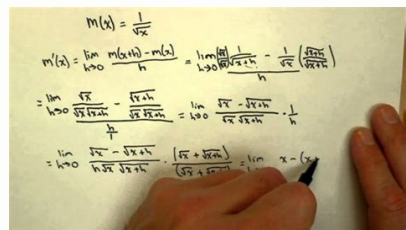 m(x) = 1/√x
m'(x) = lim h→0 (m(x+h) - m(x))/h = lim h→0 ((√x/√x) 1/√(x+h) - 1/√x (√(x+h)/√(x+h)))/h
= lim h→0 (√x/(√x √(x+h)) - √(x+h)/(√x √(x+h)))/(h/1) = lim h→0 (√x - √(x+h))/(√x √(x+h)) · 1/h
= lim h→0 (√x - √(x+h))/(h√x √(x+h)) · (√x + √(x+h))/(√x + √(x+h)) = lim x - (x